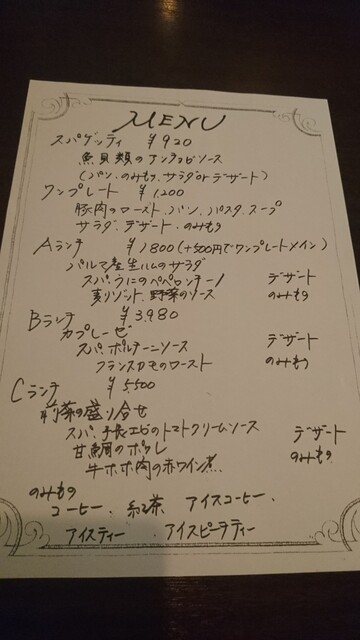 MENU
スパゲッティ ¥920
魚貝類のアンチョビソース
(パン、のみもの、サラダorデザート)
ワンプレート ¥1,200
豚肉のロースト、パン、パスタ、スープ
サラダ、デザート、のみもの
Aランチ ¥1800(+500円でワンプレートメイン)
パルマ産生ハムのサラダ
スパ、うにのペペロンチーノ デザート
麦リゾット、野菜のソース のみもの
Bランチ ¥3,980
カプレーゼ
スパ、ポルチーニソース デザート
フランスカモのロースト のみもの
Cランチ ¥5,500
前菜の盛り合せ
スパ、手長エビのトマトクリームソース デザート
甘鯛のポワレ のみもの
牛ホホ肉の赤ワイン煮
のみもの
コーヒー、紅茶 アイスコーヒー、
アイスティー アイスピーチティー